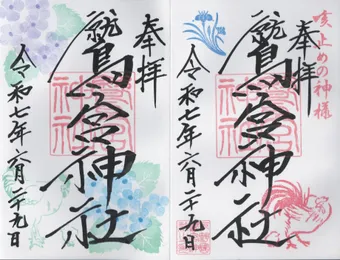 咳止めの神様
奉拝
鷲宮神社
令和七年六月二十九日
奉拝
鷲宮神社
令和七年六月二十九日